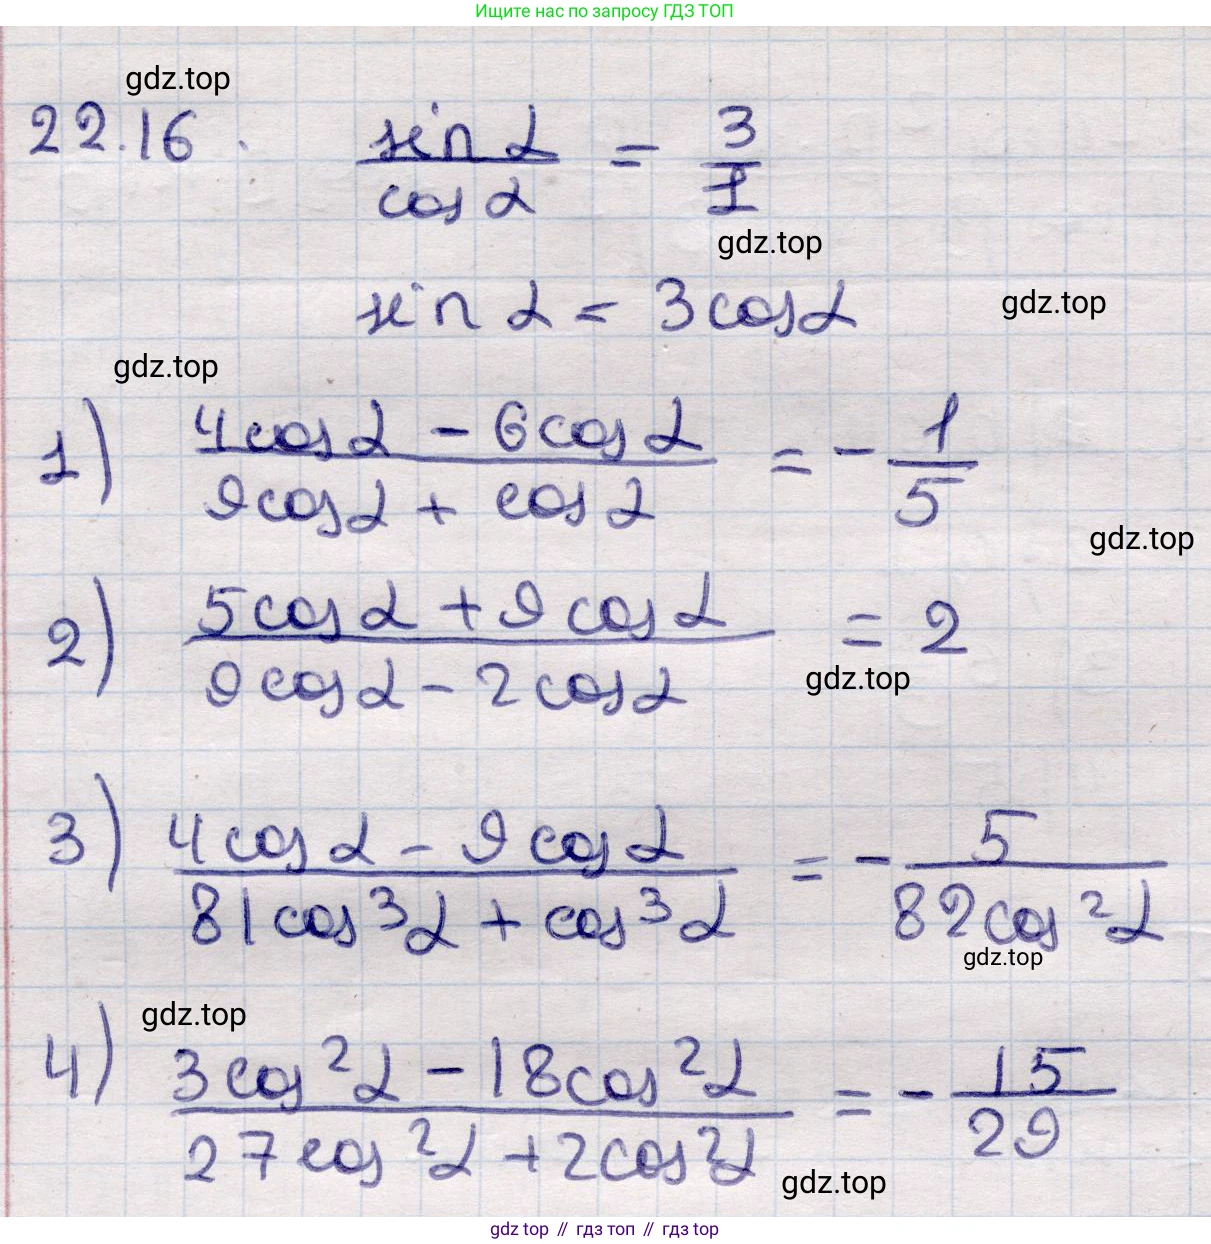 Ищите нас по запросу ГДЗ ТОП
gdz.top
22.16. sin α / cos α = 3/1
gdz.top
sin α = 3cos α
gdz.top
gdz.top
1) (4cos α - 6cos α) / (9cos α + cos α) = - 1/5
gdz.top
2) (5cos α + 9cos α) / (9cos α - 2cos α) = 2
gdz.top
3) (4cos α - 9cos α) / (81cos³α + cos³α) = - 5 / (82cos²α)
gdz.top
gdz.top
4) (3cos²α - 18cos²α) / (27cos²α + 2cos²α) = - 15/29
gdz.top
gdz top // гдз топ // гдз top